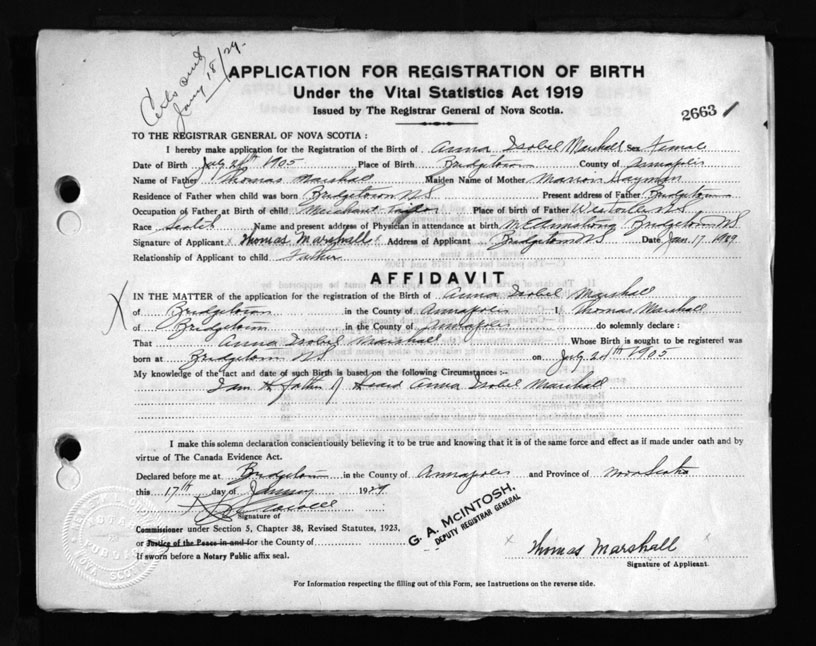 Certs and
Jany 18/29.
APPLICATION FOR REGISTRATION OF BIRTH
Under the Vital Statistics Act 1919
Issued by The Registrar General of Nova Scotia.
26631
TO THE REGISTRAR GENERAL OF NOVA SCOTIA :
I hereby make application for the Registration of the Birth of Anna Isobel Marshall Sex Female
Date of Birth July 24th 1905 Place of Birth Bridgetown County of Annapolis
Name of Father Thomas Marshall Maiden Name of Mother Marion
Residence of Father when child was born Bridgetown N S Present address of Father Bridgetown
Occupation of Father at Birth of child Merchant Tailor Place of birth of Father Westville N S
Race Scotch Name and present address of Physician in attendance at birth M E Armstrong Bridgetown N S
Signature of Applicant x Thomas Marshall Address of Applicant Bridgetown N S Date Jan. 17 1929
Relationship of Applicant to child Father
AFFIDAVIT
IN THE MATTER of the application for the registration of the Birth of Anna Isobel Marshall
of Bridgetown in the County of Annapolis I, Thomas Marshall
of Bridgetown in the County of Annapolis do solemnly declare :
That Anna Isobel Marshall Whose Birth is sought to be registered was
born at Bridgetown N S on July 24th 1905
My knowledge of the fact and date of such Birth is based on the following Circumstances :—
I am the father of Anna Isobel Marshall
I make this solemn declaration conscientiously believing it to be true and knowing that it is of the same force and effect as if made under oath and by
virtue of The Canada Evidence Act.
Declared before me at Bridgetown in the County of Annapolis and Province of Nova Scotia
this 17th day of January 1929
Signature of
Commissioner under Section 5, Chapter 38, Revised Statutes, 1923,
or Justice of the Peace in and for the County of
If sworn before a Notary Public affix seal.
G. A. McINTOSH,
DEPUTY REGISTRAR GENERAL
x Thomas Marshall x
Signature of Applicant.
For Information respecting the filling out of this Form, see Instructions on the reverse side.